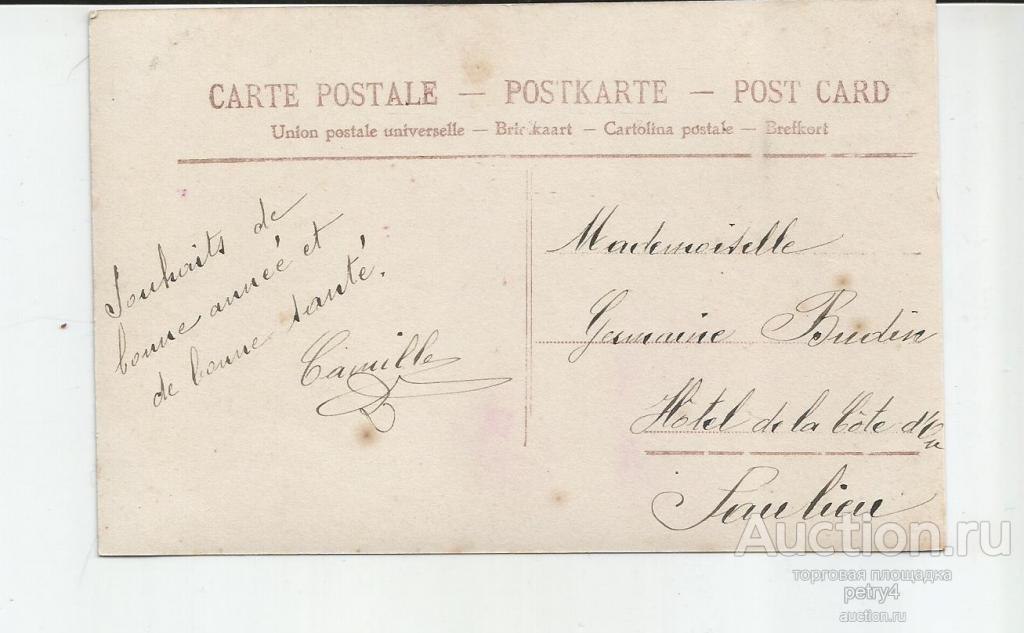 CARTE POSTALE — POSTKARTE — POST CARD
Union postale universelle — Briefkaart — Cartolina postale — Brefkort
Souhaits de
bonne année et
de bonne santé.
Camille
Mademoiselle
Germaine Budin
Hôtel de la Côte d'Or
Saulieu
Auction.ru
торговая площадка
petry4
auction.ru